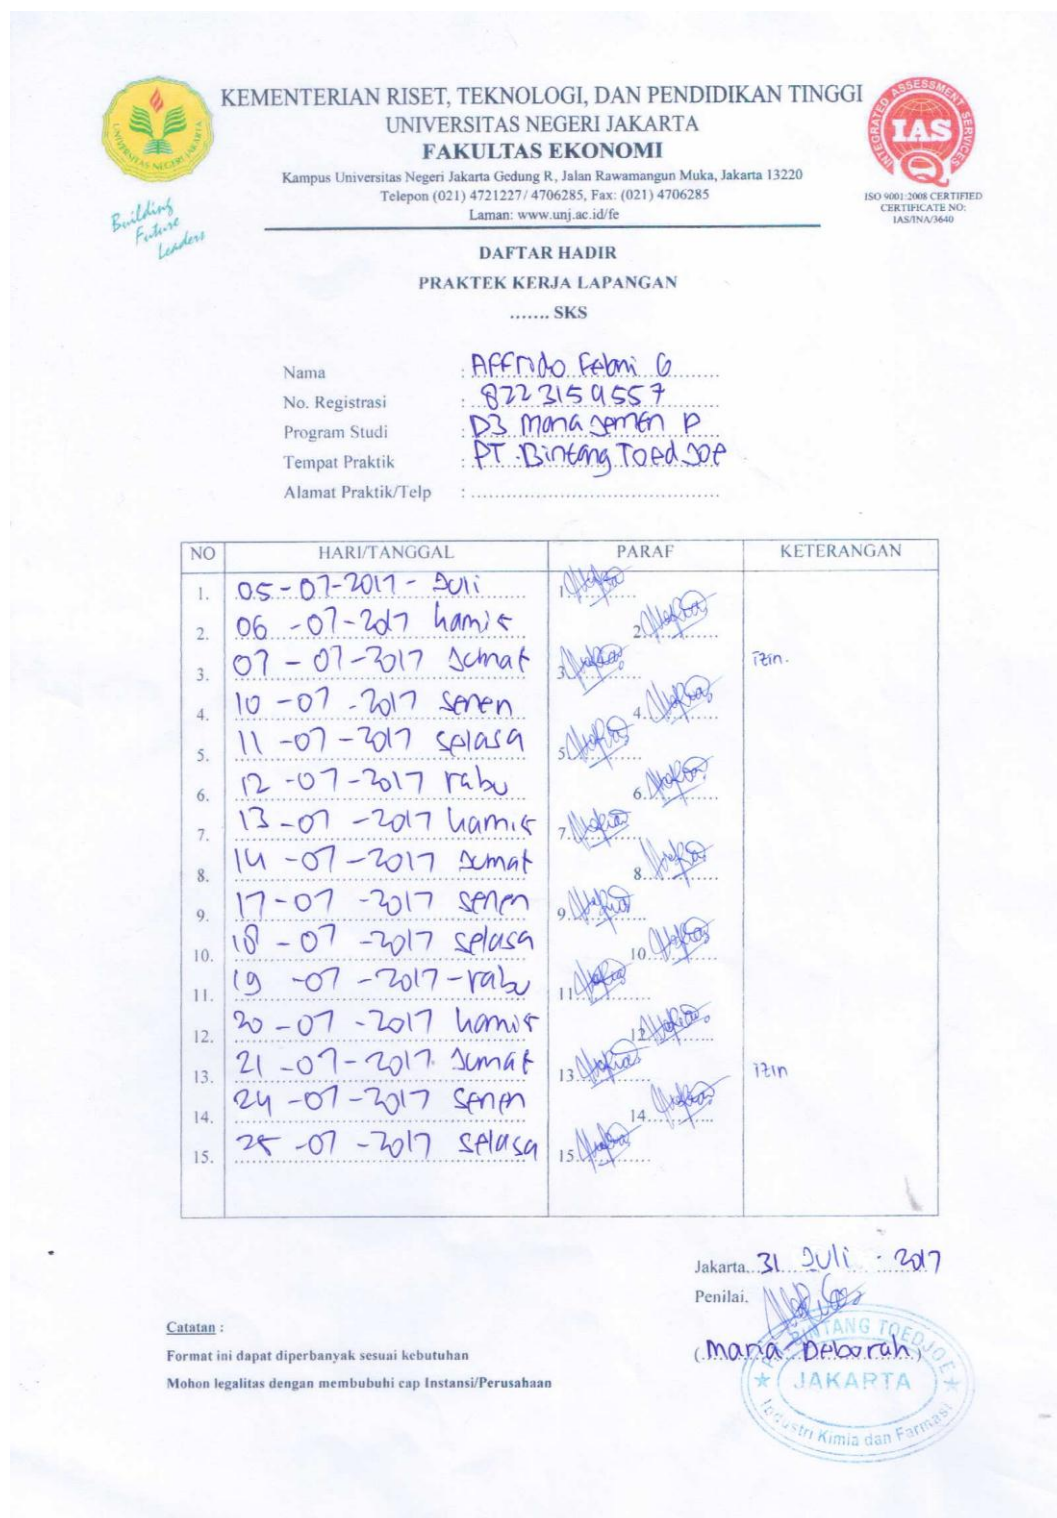 KEMENTERIAN RISET, TEKNOLOGI, DAN PENDIDIKAN TINGGI
UNIVERSITAS NEGERI JAKARTA
FAKULTAS EKONOMI
Kampus Universitas Negeri Jakarta Gedung R, Jalan Rawamangun Muka, Jakarta 13220
Telepon (021) 4721227/ 4706285, Fax: (021) 4706285
Laman: www.unj.ac.id/fe
UNIVERSITAS NEGERI JAKARTA
Building
Future
Leaders
INTEGRATED ASSESSMENT SERVICES
IAS
ISO 9001:2008 CERTIFIED
CERTIFICATE NO:
IAS/INA/3640
DAFTAR HADIR
PRAKTEK KERJA LAPANGAN
....... SKS
Nama : Affrido Febri G
No. Registrasi : 8223159557
Program Studi : D3 Manajemen P
Tempat Praktik : PT. Bintang Toed Joe
Alamat Praktik/Telp : ........................................
NO HARI/TANGGAL PARAF KETERANGAN
1. 05-07-2017 - Juli 1.
2. 06-07-2017 kamis 2.
3. 07-07-2017 Jumat 3. izin.
4. 10-07-2017 senen 4.
5. 11-07-2017 selasa 5.
6. 12-07-2017 rabu 6.
7. 13-07-2017 kamis 7.
8. 14-07-2017 Jumat 8.
9. 17-07-2017 senen 9.
10. 18-07-2017 selasa 10.
11. 19-07-2017-rabu 11.
12. 20-07-2017 kamis 12.
13. 21-07-2017 Jumat 13. izin
14. 24-07-2017 senen 14.
15. 25-07-2017 selasa 15.
Jakarta, 31 Juli - 2017
Penilai,
(Maria Deborah)
PT. BINTANG TOEDJOE
JAKARTA
Industri Kimia dan Farmasi
Catatan :
Format ini dapat diperbanyak sesuai kebutuhan
Mohon legalitas dengan membubuhi cap Instansi/Perusahaan